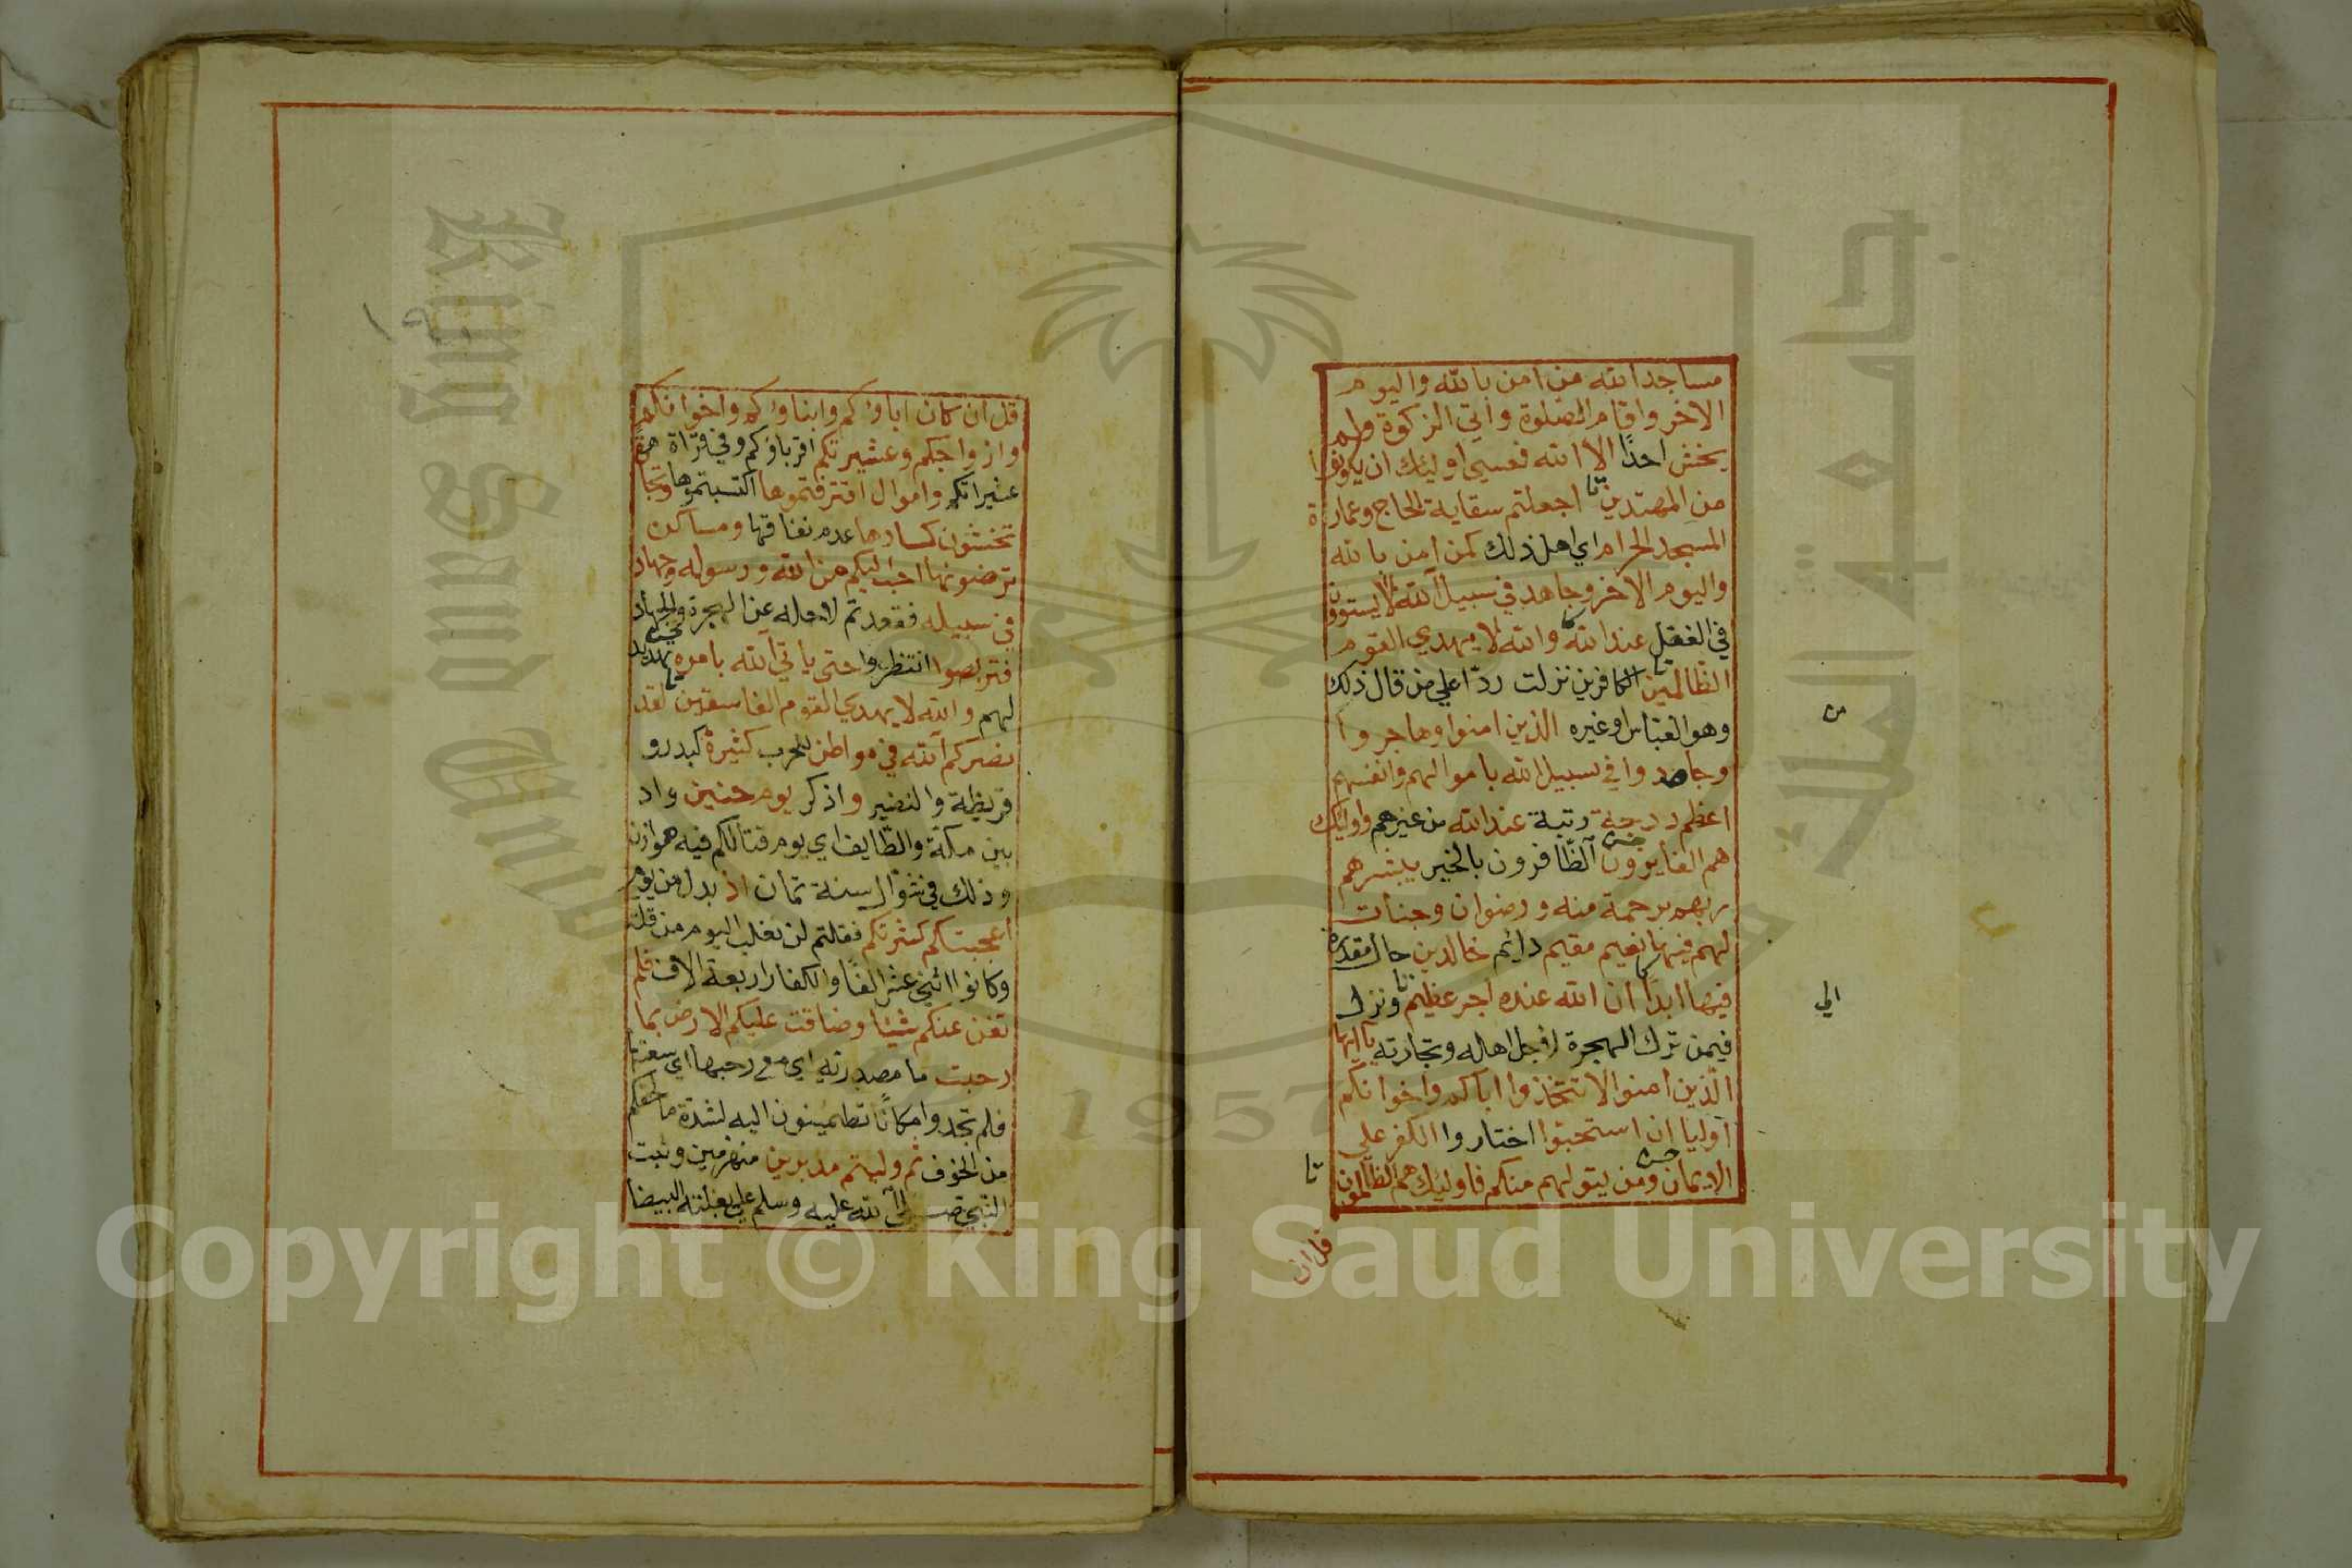 مساجد الله من امن بالله واليوم
الاخر واقام الصلوة واتي الزكوة ولم
يخش احدًا الا الله فعسى اوليك ان يكونوا
من المهتدين اجعلتم سقاية الحاج وعمارة
المسجد الحرام اي اهل ذلك كمن امن بالله
واليوم الاخر وجاهد في سبيل الله لا يستوون
في الفضل عند الله والله لا يهدي القوم
الظالمين الكافرين نزلت ردّا علي من قال ذلك
وهو العباس او غيره الذين امنوا وهاجروا
وجاهدوا في سبيل الله باموالهم وانفسهم
اعظم درجة رتبة عند الله من غيرهم واوليك
هم الفايزون الظافرون بالخير يبشرهم
ربهم برحمة منه ورضوان وجنات
لهم فيها نعيم مقيم دايم خالدين حال مقدرة
فيها ابدًا ان الله عنده اجر عظيم ونزل
فيمن ترك الهجرة لاجل اهله وتجارته يا ايها
الذين امنوا لا تتخذوا اباكم واخوانكم
اوليا ان استحبّوا اختاروا الكفر على
الايمان ومن يتولهم منكم فاوليك هم الظالمون
قل ان
من
الي
قل ان كان اباؤكم وابناؤكم واخوانكم
وازواجكم وعشيرتكم اقرباؤكم وفي قراة
عشيراتكم واموال اقترفتموها اكتسبتموها وتجا
تخشون كسادها عدم نفاقها ومساكن
ترضونها احب اليكم من الله ورسوله وجهاد
في سبيله فقعدتم لاجله عن الهجرة والجهاد
فتربصوا انتظروا حتى ياتي الله بامره تهديد
لهم والله لا يهدي القوم الفاسقين لقد
نصركم الله في مواطن للحرب كثيرة كبدر و
قريظة والنضير واذكر يوم حنين واد
بين مكة والطايف اي يوم قتالكم فيه هوازن
وذلك في شوّال سنة ثمان اذ بدل من يوم
اعجبتكم كثرتكم فقلتم لن نغلب اليوم من قلة
وكانوا اثني عشر الفًا والكفار اربعة الاف فلم
تغن عنكم شيئا وضاقت عليكم الارض بما
رحبت ما مصدرية اي مع رحبها اي سعتها
فلم تجدوا مكانًا تطمينون اليه لشدة ما لحقكم
من الخوف ثم وليتم مدبرين منهزمين وثبت
النبي صلى الله عليه وسلم علي بغلته البيضا
King Saud
جامعة الملك
1957
Copyright © King Saud University